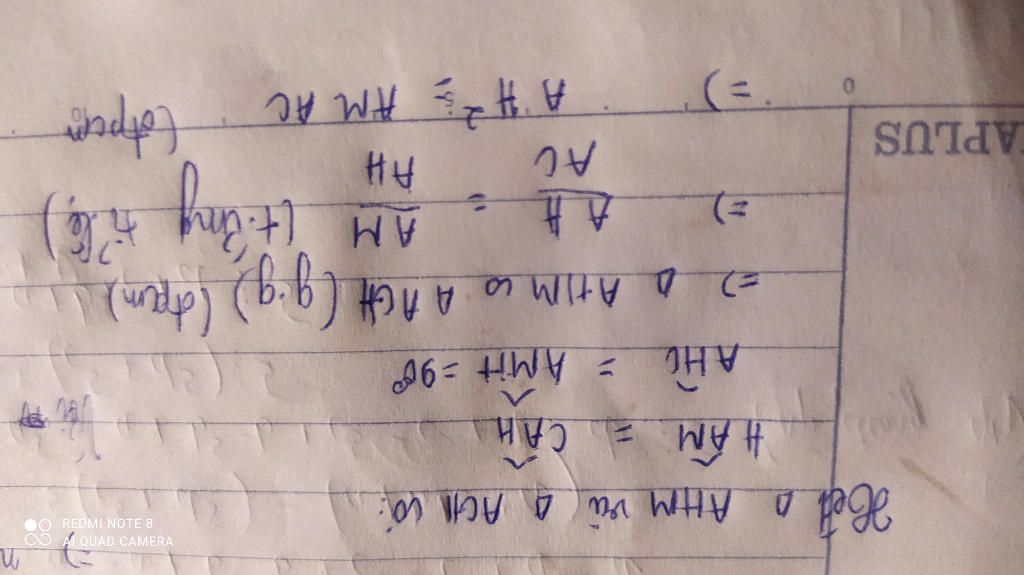 Xét Δ AHM và Δ ACH có:
HÂM = CÂH
AĤC = AM̂H = 90°
=> Δ AHM ∽ Δ ACH (g.g) (đpcm)
=> AH/AC = AM/AH (t.ứng tỉ lệ)
=> AH² = AM.AC (đpcm)
APLUS
REDMI NOTE 8
AI QUAD CAMERA